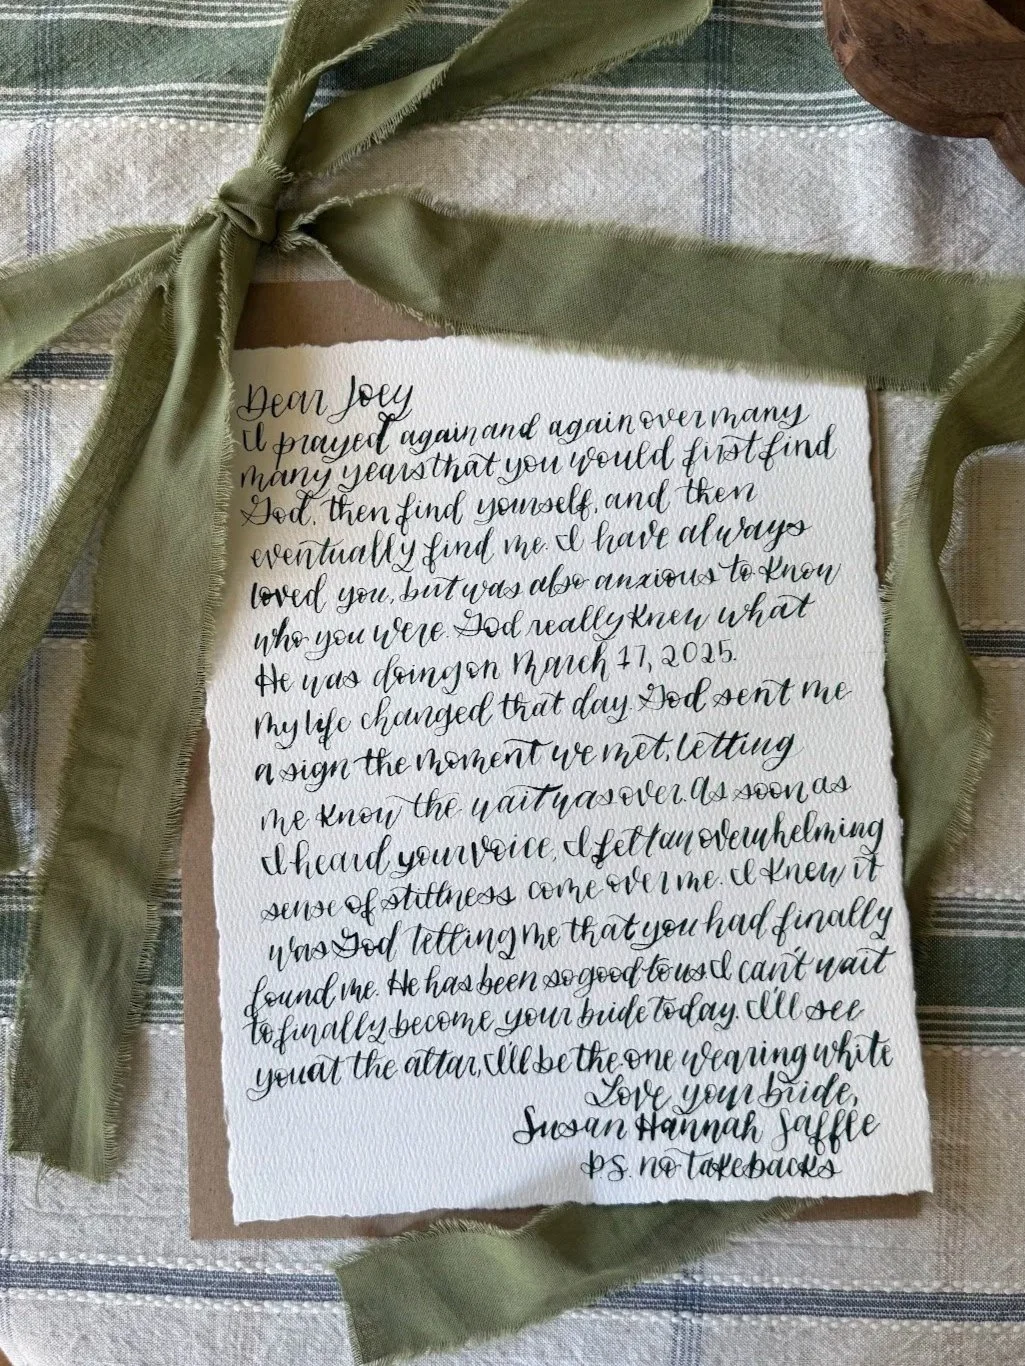 Dear Joey
I prayed again and again over many
many years that you would first find
God, then find yourself, and then
eventually find me. I have always
loved you, but was also anxious to know
who you were. God really knew what
He was doing on March 17, 2025.
My life changed that day. God sent me
a sign the moment we met, letting
me know the wait was over. As soon as
I heard your voice, I felt an overwhelming
sense of stillness come over me. I knew it
was God letting me that you had finally
found me. He has been so good to us I can't wait
to finally become your bride today. I'll see
you at the altar, I'll be the one wearing white
Love your bride,
Susan Hannah Saffle
P.S. no takebacks